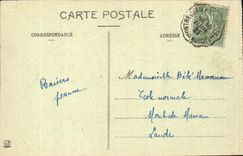 CARTE POSTALE
CORRESPONDANCE
ADRESSE
Baisers
Jeanne
Mademoiselle Bébé
Ecole normale
Mont de Marsan
Landes